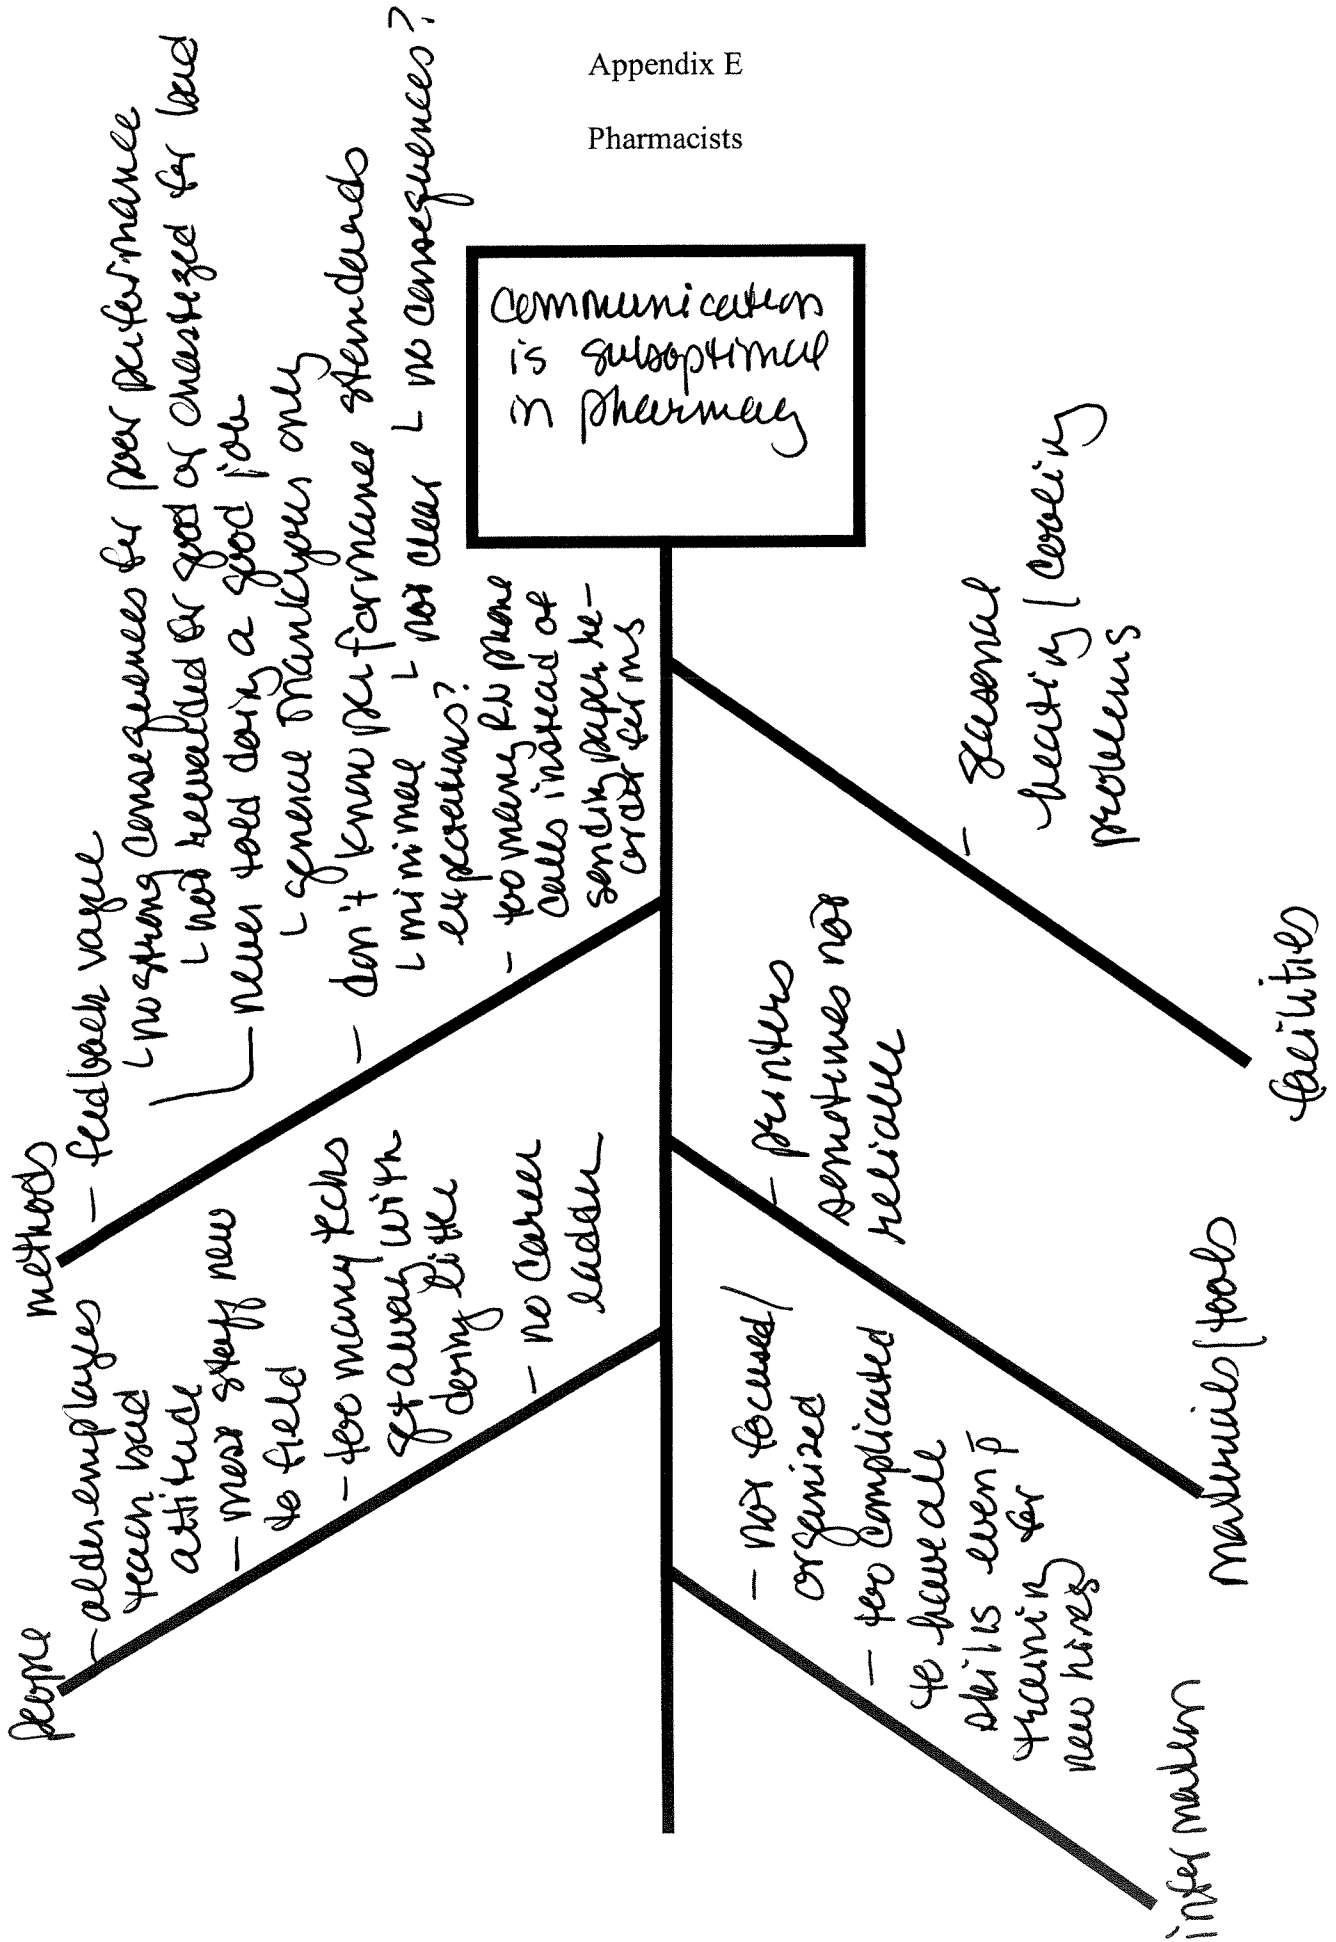 Appendix E
Pharmacists
communication
is suboptimal
in pharmacy
people
- older employees
teach bad
attitude
- most staff new
to field
- too many techs
get away with
doing little
- no career
ladder
methods
- feedback vague
└ no strong consequences for poor performance
└ not rewarded for good or chastized for bad
- never told doing a good job
└ general thankyous only
- don't know performance standards
└ minimal └ not clear └ no consequences?
expectations?
- too many RN phone
calls instead of
sending paper re-
order forms
information
- not focused/
organized
- too complicated
to have all
skills even p̄
training for
new hires
materials/tools
- printers
sometimes not
reliable
facilities
- seasonal
heating/cooling
problems